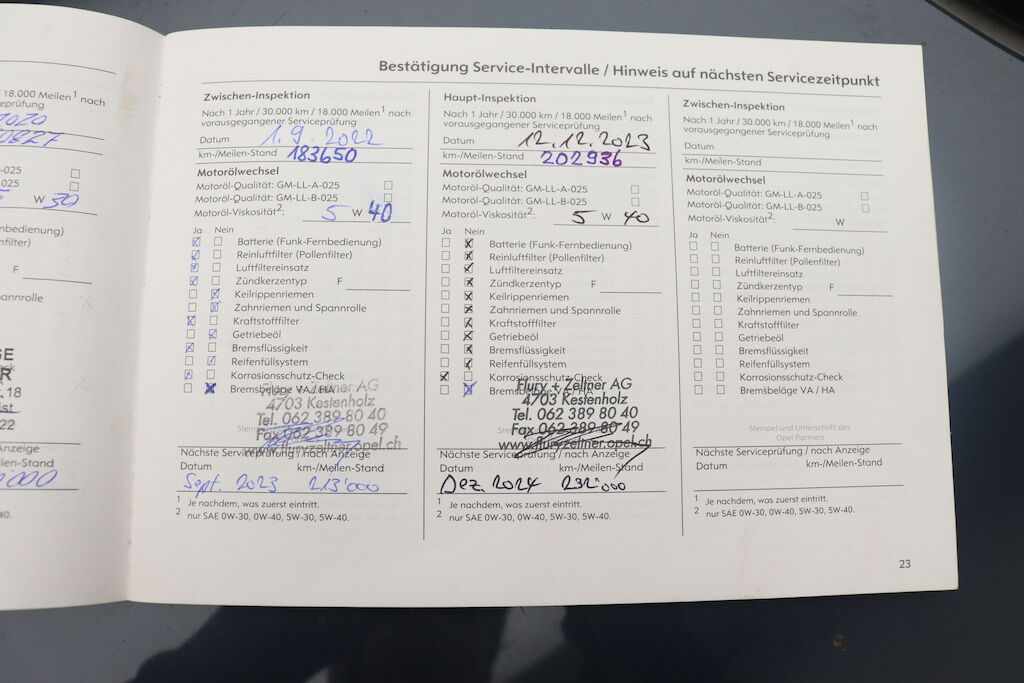 18.000 Meilen1 nach
-025
-025
W 30
F
Bestätigung Service-Intervalle / Hinweis auf nächsten Servicezeitpunkt
Zwischen-Inspektion
Nach 1 Jahr / 30.000 km / 18.000 Meilen1 nach
vorausgegangener Serviceprüfung
Datum 1.9.2022
km-/Meilen-Stand 183650
Motorölwechsel
Motoröl-Qualität: GM-LL-A-025
Motoröl-Qualität: GM-LL-B-025
Motoröl-Viskosität2: 5 W 40
Ja Nein
Batterie (Funk-Fernbedienung)
Reinluftfilter (Pollenfilter)
Luftfiltereinsatz
Zündkerzentyp F
Keilrippenriemen
Zahnriemen und Spannrolle
Kraftstofffilter
Getriebeöl
Bremsflüssigkeit
Reifenfüllsystem
Korrosionsschutz-Check
Bremsbeläge VA / HA
Flury + Zellner AG
4703 Kestenholz
Tel. 062 389 80 40
Fax 062 389 80 49
www.fluryzellner.opel.ch
Nächste Serviceprüfung / nach Anzeige
Datum km-/Meilen-Stand
Sept. 2023 213'000
1 Je nachdem, was zuerst eintritt.
2 nur SAE 0W-30, 0W-40, 5W-30, 5W-40.
Haupt-Inspektion
Nach 1 Jahr / 30.000 km / 18.000 Meilen1 nach
vorausgegangener Serviceprüfung
Datum 12.12.2023
km-/Meilen-Stand 202936
Motorölwechsel
Motoröl-Qualität: GM-LL-A-025
Motoröl-Qualität: GM-LL-B-025
Motoröl-Viskosität2: 5 W 40
Ja Nein
Batterie (Funk-Fernbedienung)
Reinluftfilter (Pollenfilter)
Luftfiltereinsatz
Zündkerzentyp F
Keilrippenriemen
Zahnriemen und Spannrolle
Kraftstofffilter
Getriebeöl
Bremsflüssigkeit
Reifenfüllsystem
Korrosionsschutz-Check
Bremsbeläge VA / HA
Flury + Zellner AG
4703 Kestenholz
Tel. 062 389 80 40
Fax 062 389 80 49
www.fluryzellner.opel.ch
Nächste Serviceprüfung / nach Anzeige
Datum km-/Meilen-Stand
Dez. 2024 232'000
1 Je nachdem, was zuerst eintritt.
2 nur SAE 0W-30, 0W-40, 5W-30, 5W-40.
Zwischen-Inspektion
Nach 1 Jahr / 30.000 km / 18.000 Meilen1 nach
vorausgegangener Serviceprüfung
Datum
km-/Meilen-Stand
Motorölwechsel
Motoröl-Qualität: GM-LL-A-025
Motoröl-Qualität: GM-LL-B-025
Motoröl-Viskosität2: W
Ja Nein
Batterie (Funk-Fernbedienung)
Reinluftfilter (Pollenfilter)
Luftfiltereinsatz
Zündkerzentyp F
Keilrippenriemen
Zahnriemen und Spannrolle
Kraftstofffilter
Getriebeöl
Bremsflüssigkeit
Reifenfüllsystem
Korrosionsschutz-Check
Bremsbeläge VA / HA
Stempel und Unterschrift des
Opel Partners
Nächste Serviceprüfung / nach Anzeige
Datum km-/Meilen-Stand
1 Je nachdem, was zuerst eintritt.
2 nur SAE 0W-30, 0W-40, 5W-30, 5W-40.
23